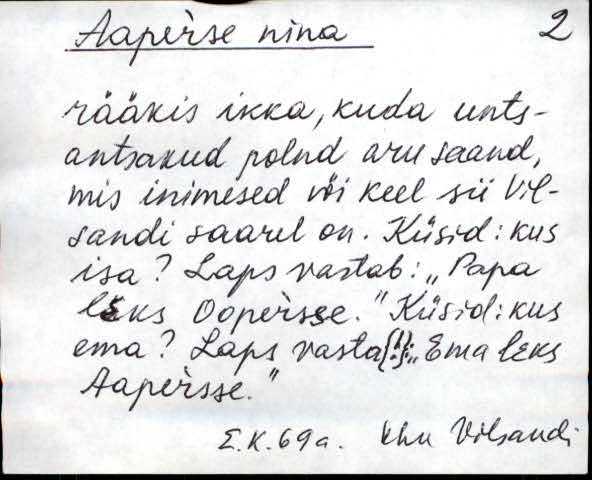 Aaperse nina 2
rääkis ikka, kuda unts-
antsakud polnd aru saand,
mis inimesed või keel sii Vil-
sandi saarel on. Küsid: kus
isa? Laps vastab: „Papa
leks Oopersse." Küsid: kus
ema? Laps vasta{!}: „Ema leks
Aapersse."
E.K. 69a. khn Vilsandi